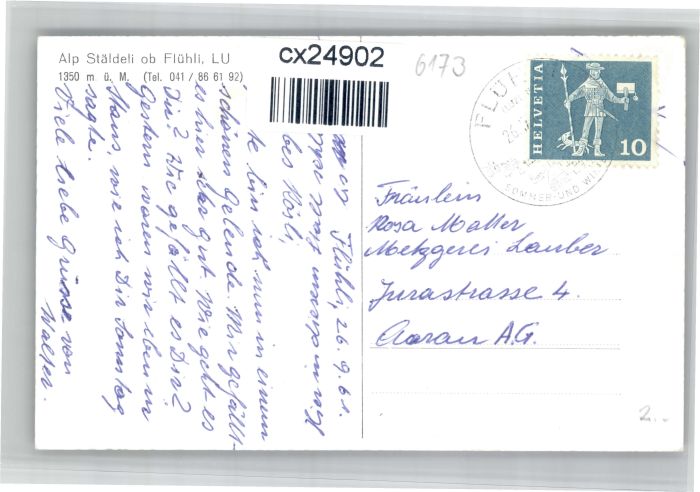 Alp Stäldeli ob Flühli, LU
1350 m ü. M. (Tel. 041 / 86 61 92)
cx24902
6173
HELVETIA
10
FLÜH
26.
SOMMER- UND WI
Flühli, 26.9.61.
bes Rösli,
bin ich nun in einem
schönen Gelende. Mir gefällt
es hier sehr gut. Wie geht es
Dir? Wie gefällt es Dir?
Gestern waren wir eben in
Staus, wie ich Dir Sonntag
sagte.
Viele liebe Grüsse von
Walter.
Fräulein
Rosa Matter
Metzgerei Lauber
Jurastrasse 4.
Aarau A.G.
2.-